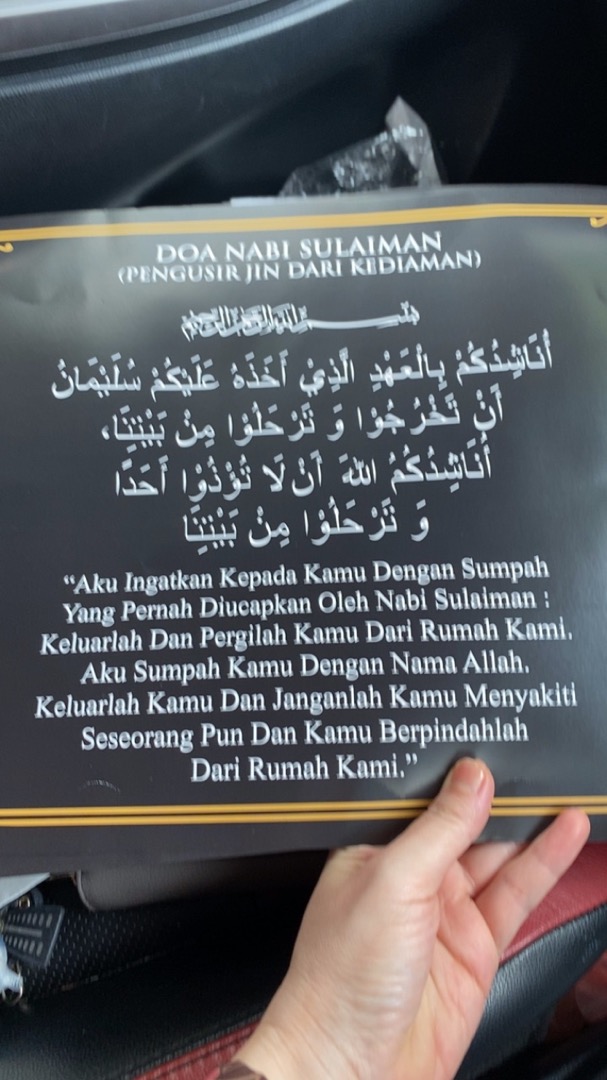 DOA NABI SULAIMAN
(PENGUSIR JIN DARI KEDIAMAN)
بِسْمِ اللهِ الرَّحْمٰنِ الرَّحِيْمِ
أُنَاشِدُكُمْ بِالْعَهْدِ الَّذِيْ أَخَذَهُ عَلَيْكُمْ سُلَيْمَانُ
أَنْ تَخْرُجُوْا وَ تَرْحَلُوْا مِنْ بَيْتِنَا،
أُنَاشِدُكُمُ اللهَ أَنْ لَا تُؤْذُوْا أَحَدًا
وَ تَرْحَلُوْا مِنْ بَيْتِنَا
“Aku Ingatkan Kepada Kamu Dengan Sumpah
Yang Pernah Diucapkan Oleh Nabi Sulaiman :
Keluarlah Dan Pergilah Kamu Dari Rumah Kami.
Aku Sumpah Kamu Dengan Nama Allah.
Keluarlah Kamu Dan Janganlah Kamu Menyakiti
Seseorang Pun Dan Kamu Berpindahlah
Dari Rumah Kami.”